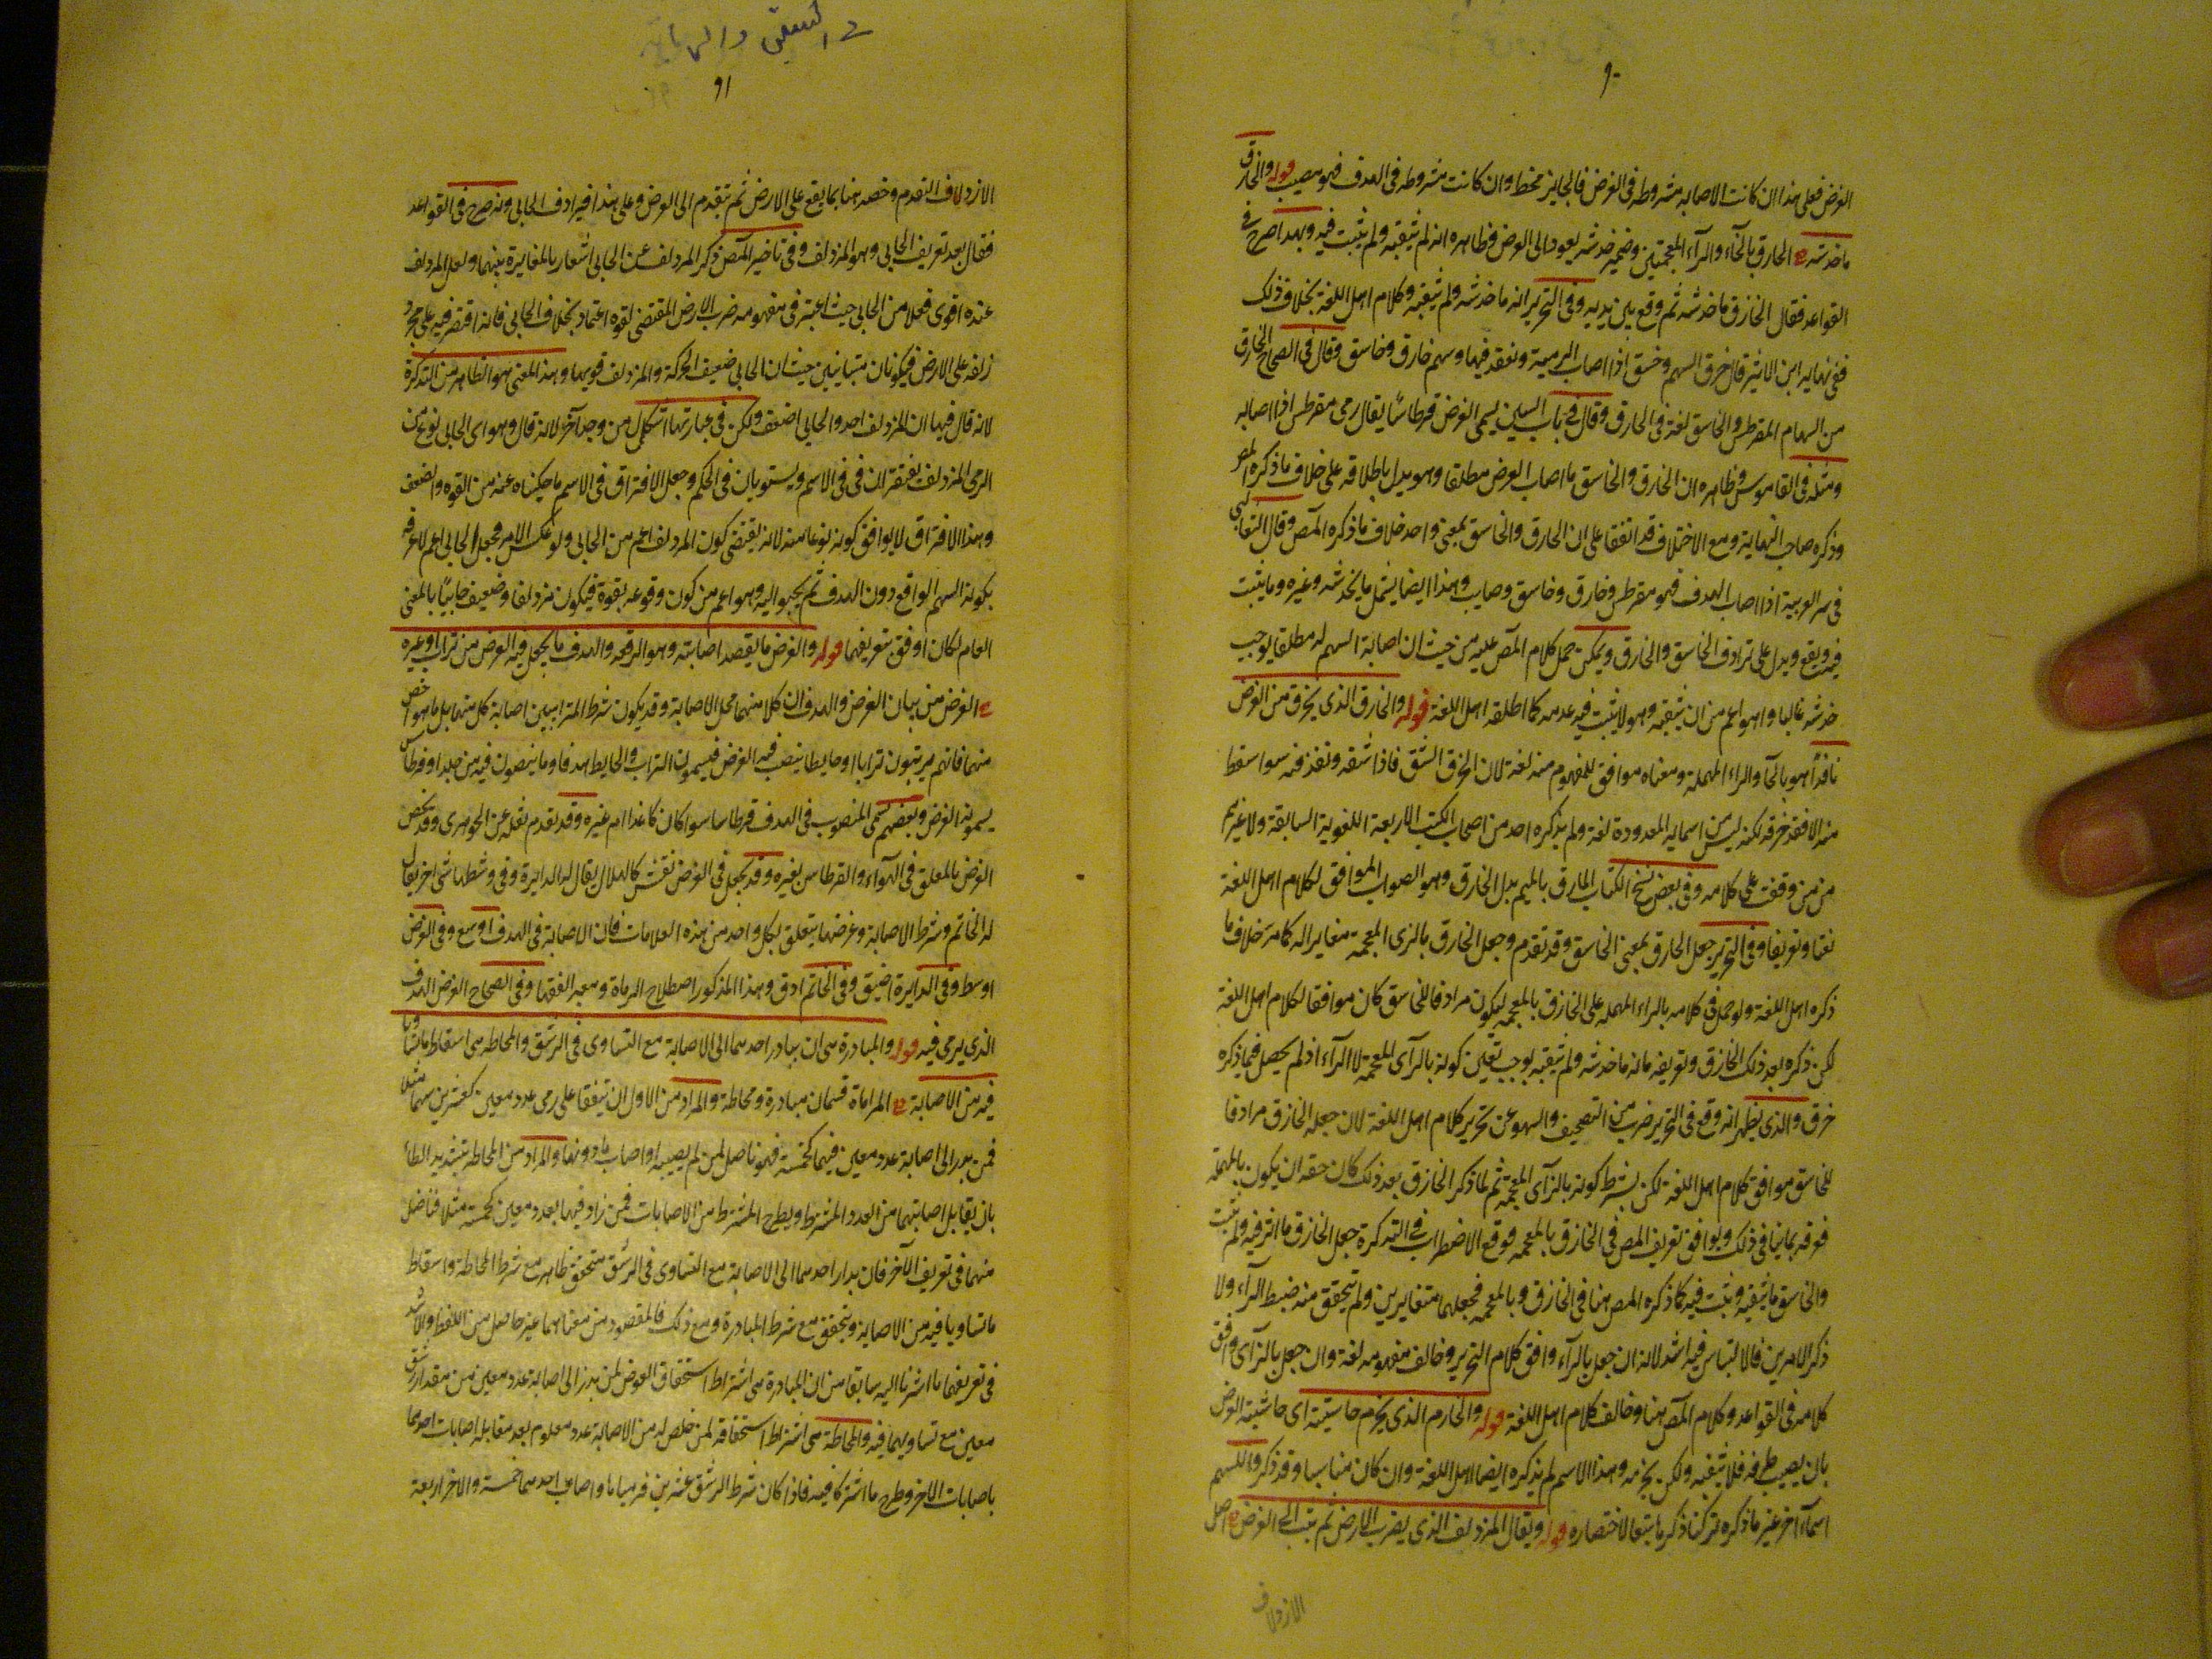 ٩٠
الغرض فعلى هذا ان كانت الاصابه مشروطه فى الغرض فالجايز مخط وان كانت مشروطه فى الهدف فهو مصيب قوله والخارق
ما خدشه الخارق بالخاء والراء المعجمتين وضمير خدشه يعود الى الغرض وظاهره انه لم يثقبه ولم يثبت فيه وبهذا صرح فى
القواعد فقال الخازق ما خدشه ثم وقع بين يديه وفى التحرير انه ما خدشه ولم يثقبه وكلام اهل اللغة بخلاف ذلك
ففى نهاية ابن الاثير قال خزق السهم وخسق اذا اصاب الرمية ونفذ فيها وسهم خازق وخاسق وقال فى الصحاح الخازق
من السهام المقرطس والخاسق لغة فى الخازق وقال فى باب السين يسمى الغرض قرطاسًا يقال رمى مقرطس اذا اصابه
ومثله فى القاموس وظاهره ان الخارق والخاسق ما اصاب الغرض مطلقا وهو يدل باطلاقه على خلاف ما ذكره المص
وذكره صاحب النهاية ومع الاختلاف فقد اتفقا على ان الخارق والخاسق بمعنى واحد خلاف ما ذكره المص وقال الثعالبى
فى سر العربية اذا اصاب الهدف فهو مقرطس وخارق وخاسق وصايب وهذا ايضا يشمل ما يخدشه وغيره وما يثبت
فيه ويقع ويدل على ترادف الخاسق والخارق ويمكن حمل كلام المص عليه من حيث ان اصابة السهم له مطلقا يوجب
خدشه غالبا واهو اعم من ان يثقبه وهو لا يثبت فيه عدمه كما اطلقه اهل اللغة قوله والخارق الذى يخرق من الغرض
نافذًا هو بالخا والراء المهملة ومعناه موافق للمفهوم منه لغة لان الخرق الشق فاذا شقه ونفذ فيه سوا سقط
منه الا فقد خرقه لكنه ليس من اسمايه المعدودة لغة ولم يذكره احد من اصحاب الكتب الاربعة اللغوية السابقة ولا غيرهم
من من وقفت على كلامه وفى بعض نسخ الكتاب المارق بالميم بدل الخارق وهو الصواب الموافق لكلام اهل اللغة
نعتا وتعريفا وفى التحرير جعل الخارق بمعنى الخاسق وقد تقدم وجعل الخازق بالزى المعجمة مغايرا له كما مر خلاف ما
ذكره اهل اللغة ولو حمل فى كلامه بالراء المهمله على الخازق بالمعجمه ليكون مرادفا للخاسق كان موافقا لكلام اهل اللغة
لكن ذكره بعد ذلك الخازق وتعريفه بانه ما خدشه ولم يثقبه يوجب تعين كونه بالزاى المعجمه لا الراء اذ لم يحصل فيما ذكره
خرق والذى يظهر انه وقع فى التحرير ضرب من التصحيف والسهو عن تحرير كلام اهل اللغة لان جعله الخازق مرادفا
للخاسق موافق كلام اهل اللغة لكن بشرط كونه بالزاى المعجمة ثم لما ذكر الخازق بعد ذلك كان حقه ان يكون بالمهملة
فوقه بما ينافى ذلك ويوافق تعريف المص فى الخازق بالمعجمه فوقع الاضطراب وفى التذكرة جعل الخازق ما اثر فيه ولم يثبت
والخاسق ما يثقبه ويثبت فيه كما ذكره المص هنا فى الخازق وبالمعجمه فجعلهما متغايرين ولم يتحقق منه ضبط الراء ولا
ذكر الامرين فالالتباس فيه اشد لانه ان جعل بالراء وافق كلام التحرير وخالف مفهومه لغة وان جعل بالزاى وافق
كلامه فى القواعد وكلام المص هنا وخالف كلام اهل اللغة قوله والخارم الذى يخرم حاشيته اى حاشية الغرض
بان يصيب طرفه فلا يثقبه ولكن يخرمه وهذا الاسم لم يذكره ايضا اهل اللغة وان كان مناسبا وقد ذكروا للسهم
اسماء آخر غير ما ذكره تركنا ذكرها تبعا لاختصاره قوله ويقال المزدلف الذى يضرب الارض ثم يثب الى الغرض اصل
الازدلاف
٩١
الازدلاف التقدم وخصه هنا بما يقع على الارض ثم يتقدم الى الغرض وعلى هذا فيرادف الحابى وبه صرح فى القواعد
فقال بعد تعريف الحابى وهو المزدلف وفى تاخير المص ذكر المزدلف عن الحابى اشعار بالمغايرة بينهما ولعل المزدلف
عنده اقوى فعلا من الحابى حيث اعتبر فى مفهومه ضرب الارض المقتضى لقوة اعتماد بخلاف الحابى فانه اقتصر فيه على مجرد
زلفه على الارض فيكونان متباينين حيث ان الحابى ضعيف الحركة والمزدلف قويها وهذا المعنى هو الظاهر من التذكرة
لانه قال فيها ان المزدلف احد والحابى اضعف ولكن فى عبارتها اشكال من وجه آخر لانه قال وهو اى الحابى نوع من
الرمى المزدلف يفترقان فى الاسم ويستويان فى الحكم وجعل الافتراق فى الاسم ما حكيناه عنه من القوه والضعف
وهذا الافتراق لا يوافق كونه نوعا منه لانه يقتضى كون المزدلف اعم من الحابى ولو عكس الامر فجعل الحابى اعم لاعرفه
بكونه السهم الواقع دون الهدف ثم يحبو اليه وهو اعم من كون وقوعه بقوة فيكون مزدلفا وضعيف حابيًا بالمعنى
العام لكان اوفق بتعريفهما قوله والغرض ما يقصد اصابته وهو الرقعه والهدف ما يجعل فيه الغرض من تراب وغيره
الغرض من بيان الغرض والهدف ان كلا منهما محل الاصابة وقد يكون شرط المتراميين اصابة كل منهما بل ما هو اخص
منهما فانهم يرتبون ترابا او حايطا ينصب فيه الغرض فيسمون التراب والحايط هدفا وما ينصبون فيه من جلد او قرطاس
يسمونه الغرض وبعضهم يسمى المنصوب فى الهدف قرطاسا سوا كان كاغذا ام غيره وقد تقدم نقله عن الجوهرى وقد يخص
الغرض بالمعلق فى الهواء والقرطاس بغيره وقد يجعل فى الغرض نقش كالهلال يقال له الدايرة وفى وسطها شى اخر يقال
له الخاتم وشرط الاصابة وغرضها يتعلق بكل واحد من هذه العلامات فان الاصابة فى الهدف اوسع وفى الغرض
اوسط وفى الدايرة اضيق وفى الخاتم ادق وهذا المذكور اصطلاح الرماة وتبعه الفقها وفى الصحاح الغرض الهدف
الذى يرمى فيه قوله والمبادرة هى ان يبادر احدهما الى الاصابة مع التساوى فى الرشق والمحاطة هى اسقاط ما تساويا
فيه من الاصابة المراماة قسمان مبادرة ومحاطة والمراد من الاول ان يتفقا على رمى عدد معين كعشرين سهما مثلا
فمن بدر الى اصابة عدد معين فيهما كخمسة فهو ناضل لمن لم يصب او اصاب ما دونها والمراد من المحاطة بتشديد الطا
بان يقابل اصابتهما من العدد المشترط ويطرح المشترط من الاصابات فمن زاد فيهما بعدد معين كخمسة مثلا فناضل
منهما فى تعريف الآخر فان بدار احدهما الى الاصابة مع التساوى فى الرشق متحقق ظاهر مع شرط المحاطة واسقاط
ما تساويا فيه من الاصابة ويتحقق مع شرط المبادرة ومع ذلك فالمقصود من معناهما غير حاصل من اللفظ والاشد
فى تعريفهما ما اشرنا اليه سابقا من ان المبادرة هى اشتراط استحقاق العوض لمن بدر الى اصابة عدد معين من مقدار رشق
معين مع تساويهما فيه والمحاطة هى اشتراط استحقاقه لمن خلص له من الاصابة عدد معلوم بعد مقابلة اصابات احدهما
باصابات الاخر وطرح ما اشتركا فيه فاذا كان شرط الرشق عشرين فرمياها واصاب احدهما خمسة والاخر اربعة